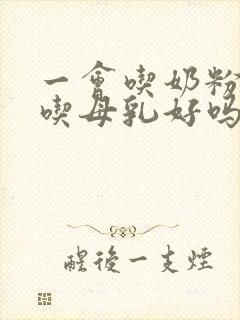 一會喫奶粉
喫母乳好嗎
醒後一支煙